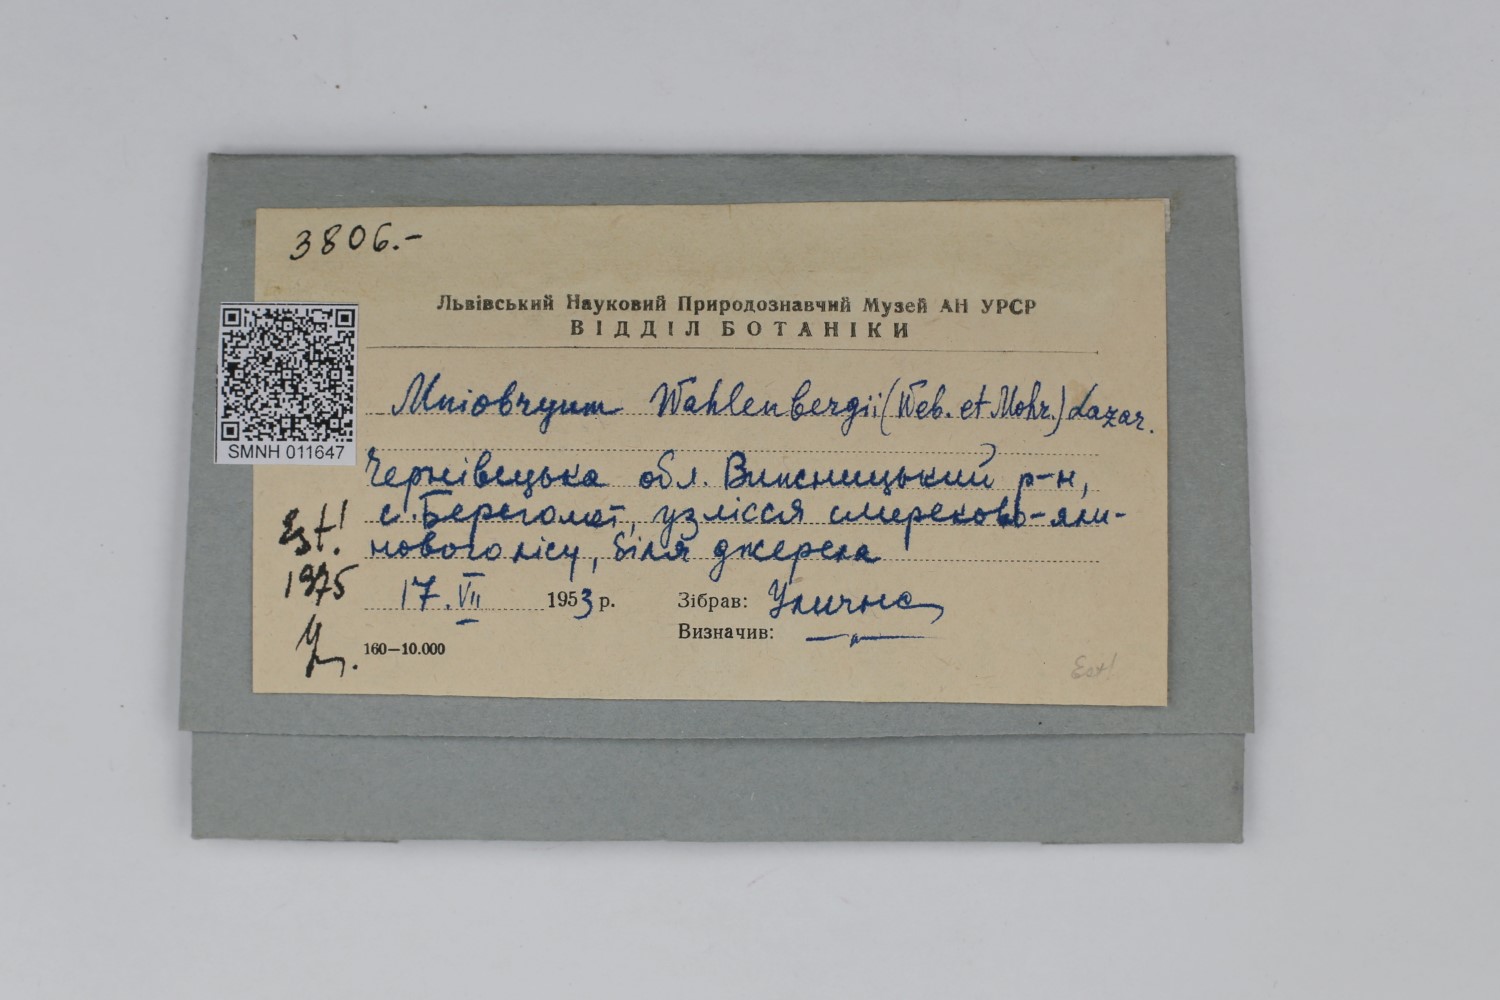 3806.-
Львівський Науковий Природознавчий Музей АН УРСР
ВІДДІЛ БОТАНІКИ
Mniobryum Wahlenbergii (Web. et Mohr.) Lazar.
SMNH 011647
Чернівецька обл. Вижницький р-н,
с. Берегомет, узлісся смереково-яли-
нового лісу, біля джерела
Est!
1975
17. VII 1953 р. Зібрав: Улична
Визначив: —"—
160—10.000
Est!